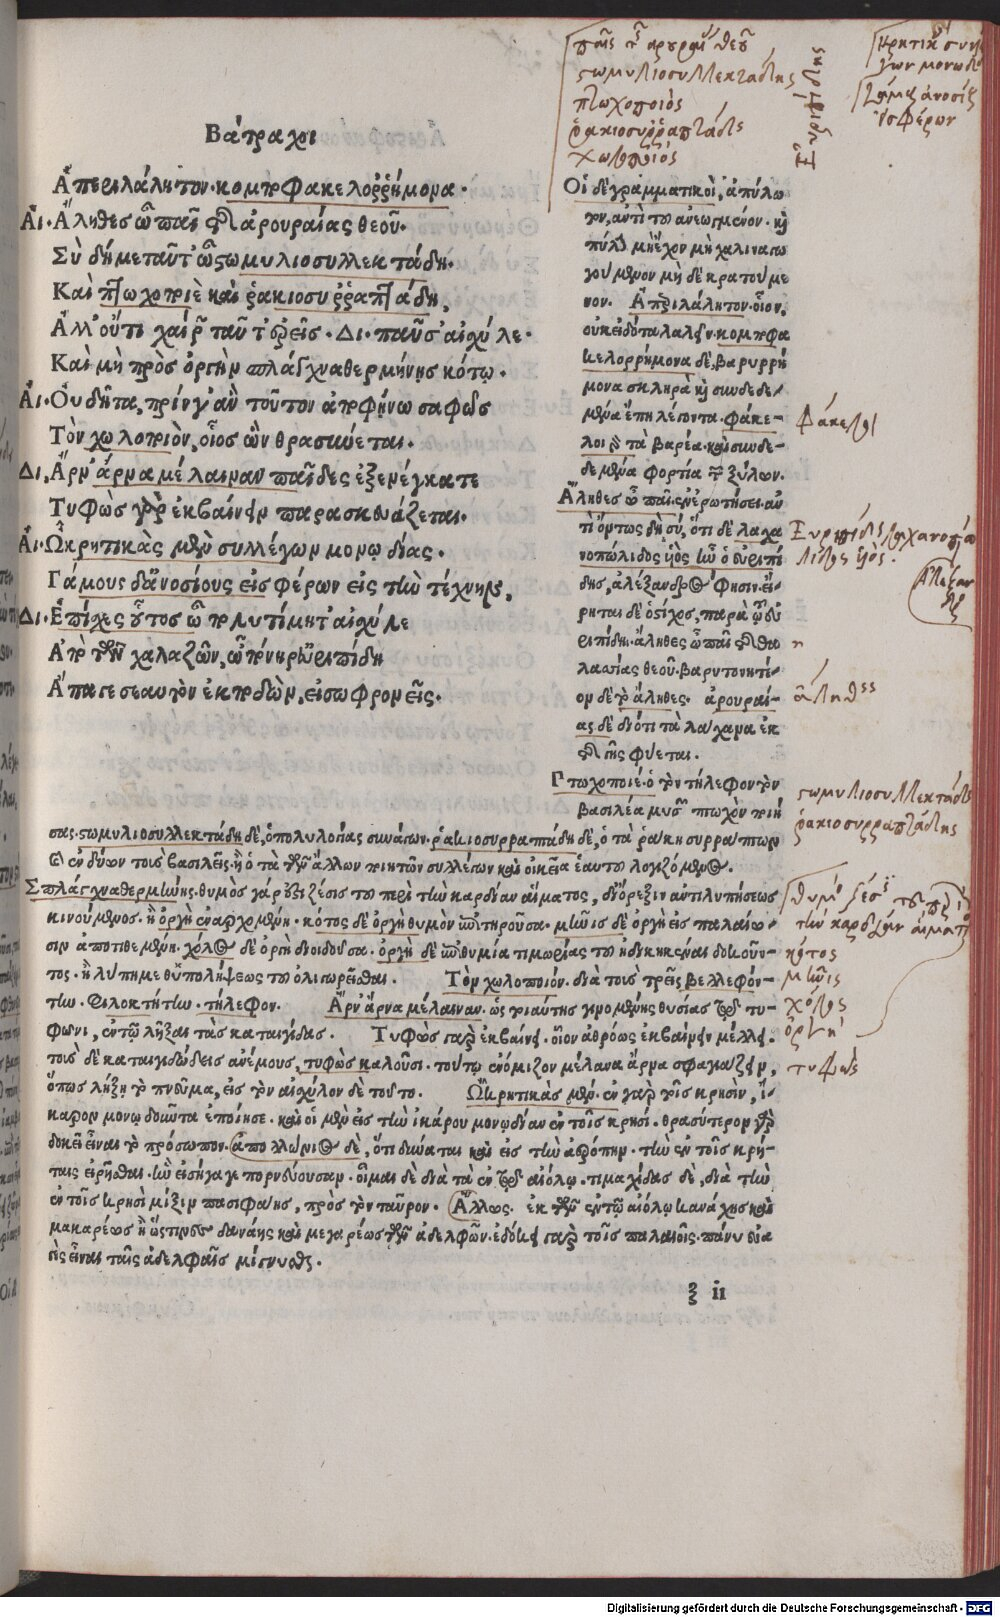 Βάτραχοι
Ἀπεριλάλητον. κομποφακελοῤῥήμονα.
Αἰ. Ἄληθες ὦ παῖ τῆς ἀρουραίας θεοῦ.
Σὺ δή με ταῦτ' ὦ στωμυλιοσυλλεκτάδη.
Καὶ πτωχοποιὲ καὶ ῥακιοσυῤῥαπτάδη,
Ἀλλ' οὔτι χαίρων ταῦτ' ἐρεῖς. Δι. παῦσ' αἰσχύλε.
Καὶ μὴ πρὸς ὀργὴν σπλάγχνα θερμήνῃς κότῳ.
Αἰ. Οὐ δῆτα, πρίν γ' ἂν τοῦτον ἀποφήνω σαφῶς
Τὸν χωλοποιὸν, οἷος ὢν θρασύνεται.
Δι. Ἄρν' ἄρνα μέλαιναν παῖδες ἐξενέγκατε
Τυφὼς γὰρ ἐκβαίνειν παρασκευάζεται.
Αἰ. Ὦ κρητικὰς μὲν συλλέγων μονῳδίας.
Γάμους δ' ἀνοσίους εἰσφέρων εἰς τὴν τέχνην,
Δι. Ἐπίσχες οὗτος ὦ πολυτίμητ' αἰσχύλε
Ἀπὸ τῶν χαλαζῶν, ὦ πόνηρ' εὐριπίδη
Ἄπαγε σεαυτὸν ἐκποδὼν, εἰ σωφρονεῖς.
Οἱ δὲ γραμματικοὶ, ἀπύλω
τον, ἀντὶ τοῦ ἀνεωγμένον. καὶ
πύλην μὴ ἔχον μὴ χαλινα γω
γούμενον μὴ δὲ κρατούμε
νον. Ἀπεριλάλητον. οἷον,
οὐκ εἰδότα λαλεῖν. κομποφα
κελορρήμονα δὲ, βαρυρρή
μονα σκληρὰ καὶ συνδεδε/
μένα ἔπη λέγοντα. φάκε-
λοι γὰρ τὰ βαρέα. καὶ συνδε-
δεμένα φορτία τῶν ξύλων.
Ἄληθες ὦ παῖ. ἐν ἐρωτήσει. ἀν
τὶ ὄντως δὴ σύ, ὅτι δὲ λαχα
νοπώλιδος υἱὸς ἦν ὁ εὐριπί
δης, ἀλέξανδρος φησιν. εἴ-
ρηται δὲ ὁ στίχος, παρὰ τῷ εὐ
ριπίδῃ. ἄληθες ὦ παῖ τῆς θα
λασσίας θεοῦ. βαρυτονητέ-
ον δὲ τὸ ἄληθες. ἀρουραί-
ας δὲ διότι τὰ λάχανα ἐκ
τῆς γῆς φύεται.
Πτωχοποιέ. ὁ τὸν τήλεφον τὸν
βασιλέα μυσῶν πτωχὸν ποιή
σας. στωμυλιοσυλλεκτάδη δὲ, ὁ πολυλογίας συνάγων. ῥακιοσυρραπτάδη δὲ, ὁ τὰ ῥάκη συρράπτων
καὶ ἐνδύων τοὺς βασιλεῖς. ἢ ὁ τὰ τῶν ἄλλων ποιητῶν συλλέγων καὶ οἰκεῖα ἑαυτοῦ λογιζόμενος.
Σπλάγχνα θερμήνῃς. θυμὸς γάρ ἐστι ζέσις τοῦ περὶ τὴν καρδίαν αἵματος, δι' ὄρεξιν ἀντιλυπήσεως
κινούμενος. ἢ ὀργὴ ἐναρχομένη. κότος δὲ ὀργὴ θυμὸν ἐπιτηροῦσα. μῆνις δὲ ὀργὴ εἰς παλαίω-
σιν ἀποτιθεμένη. χόλος δὲ ὀργὴ διοιδοῦσα. ὀργὴ δὲ ἐπιθυμία τιμωρίας τοῦ ἠδικηκέναι δοκοῦν-
τος. ἢ λύπη μεθ' ὑπολήψεως τοῦ ὀλιγωρεῖσθαι. Τὸν χωλοποιόν. διὰ τοὺς τρεῖς βελλεφόν-
την. φιλοκτήτην. τήλεφον. Ἄρν' ἄρνα μέλαιναν. ὡς τοιαύτης γινομένης θυσίας τῷ τυ-
φῶνι, ἐν τῷ λῆξαι τὰς καταιγίδας. Τυφὼς γὰρ ἐκβαίνει. οἷον ἀθρόως ἐκβαίνειν μέλλει.
τοὺς δὲ καταιγιδώδεις ἀνέμους, τυφὼς καλοῦσι. τούτῳ ἐνόμιζον μέλανα ἄρνα σφαγιάζειν,
ὅπως λήξῃ τὸ πνεῦμα, εἰς τὸν αἰσχύλον δὲ τοῦτο. Ὦ κρητικὰς μὲν. ἐν γὰρ τοῖς κρησὶν, ἴ-
καρον μονῳδοῦντα ἐποίησε. καὶ οἱ μὲν εἰς τὴν ἰκάρου μονῳδίαν ἐν τοῖς κρησί. θρασύτερον γὰρ
δοκεῖ εἶναι τὸ πρόσωπον. ἀπολλώνιος δὲ, ὅτι δύναται καὶ εἰς τὴν ἀερόπην. τὴν ἐν τοῖς κρή-
ταις εἰρῆσθαι. ἣν εἰσήγαγε πορνεύουσαν. οἶμαι δὲ διὰ τὰ ἐν τῷ αἰόλῳ. τιμαχίδας δὲ, διὰ τὴν
ἐν τοῖς κρησὶ μίξιν πασιφάης, πρὸς τὸν ταῦρον. Ἄλλως. ἐκ τῶν ἐν τῷ αἰόλῳ κανάχης καὶ
μακαρέως
δανάης καὶ μεγαρέως τῶν ἀδελφῶν. ἐδόκει γὰρ τοῖς παλαιοῖς. πάνυ
εἶναι ταῖς ἀδελφαῖς μίγνυσθαι.
ξ ii
παῖς τῆς ἀρουραί θεοῦ
στωμυλιοσυλλεκτάδης
πτωχοποιὸς
ῥακιοσυῤῥαπτάδης
χωλοποιός
Ἐυριπίδης
κρητικ συλλέ
γων μονῳδί
γάμους ἀνοσίους
εἰσφέρων
φάκελοι
Ἐυριπίδης λαχανοπώ
λιδος υἱός.
Ἀλέξαν
δρ
ἄληθες
στωμυλιοσυλλεκτάδης
ῥακιοσυρραπτάδης
θυμὸς ζέσις τοῦ περὶ
τὴν καρδίαν αἵματ
κότος
μῆνις
χόλος
ὀργὴ
τυφὼς
Digitalisierung gefördert durch die Deutsche Forschungsgemeinschaft - DFG